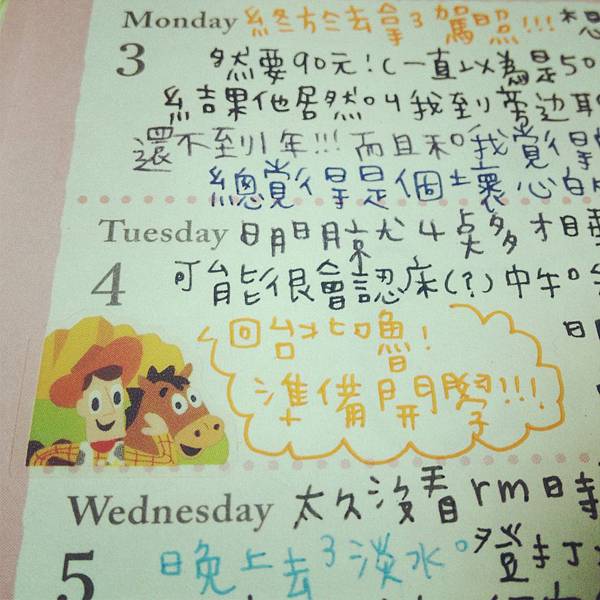 Monday 終於去拿ㄋ駕照!!! 想
3 然要90元!(一直以為是50
結果他居然叫我到旁边
還不到1年!!! 而且 我覺得
總覺得是個 壞心的
Tuesday 4點多才
4 可能很會認床(?)中午
回台北嚕!
準備開學!!!
Wednesday 太久沒看rm時
5 晚上去ㄋ淡水。登打